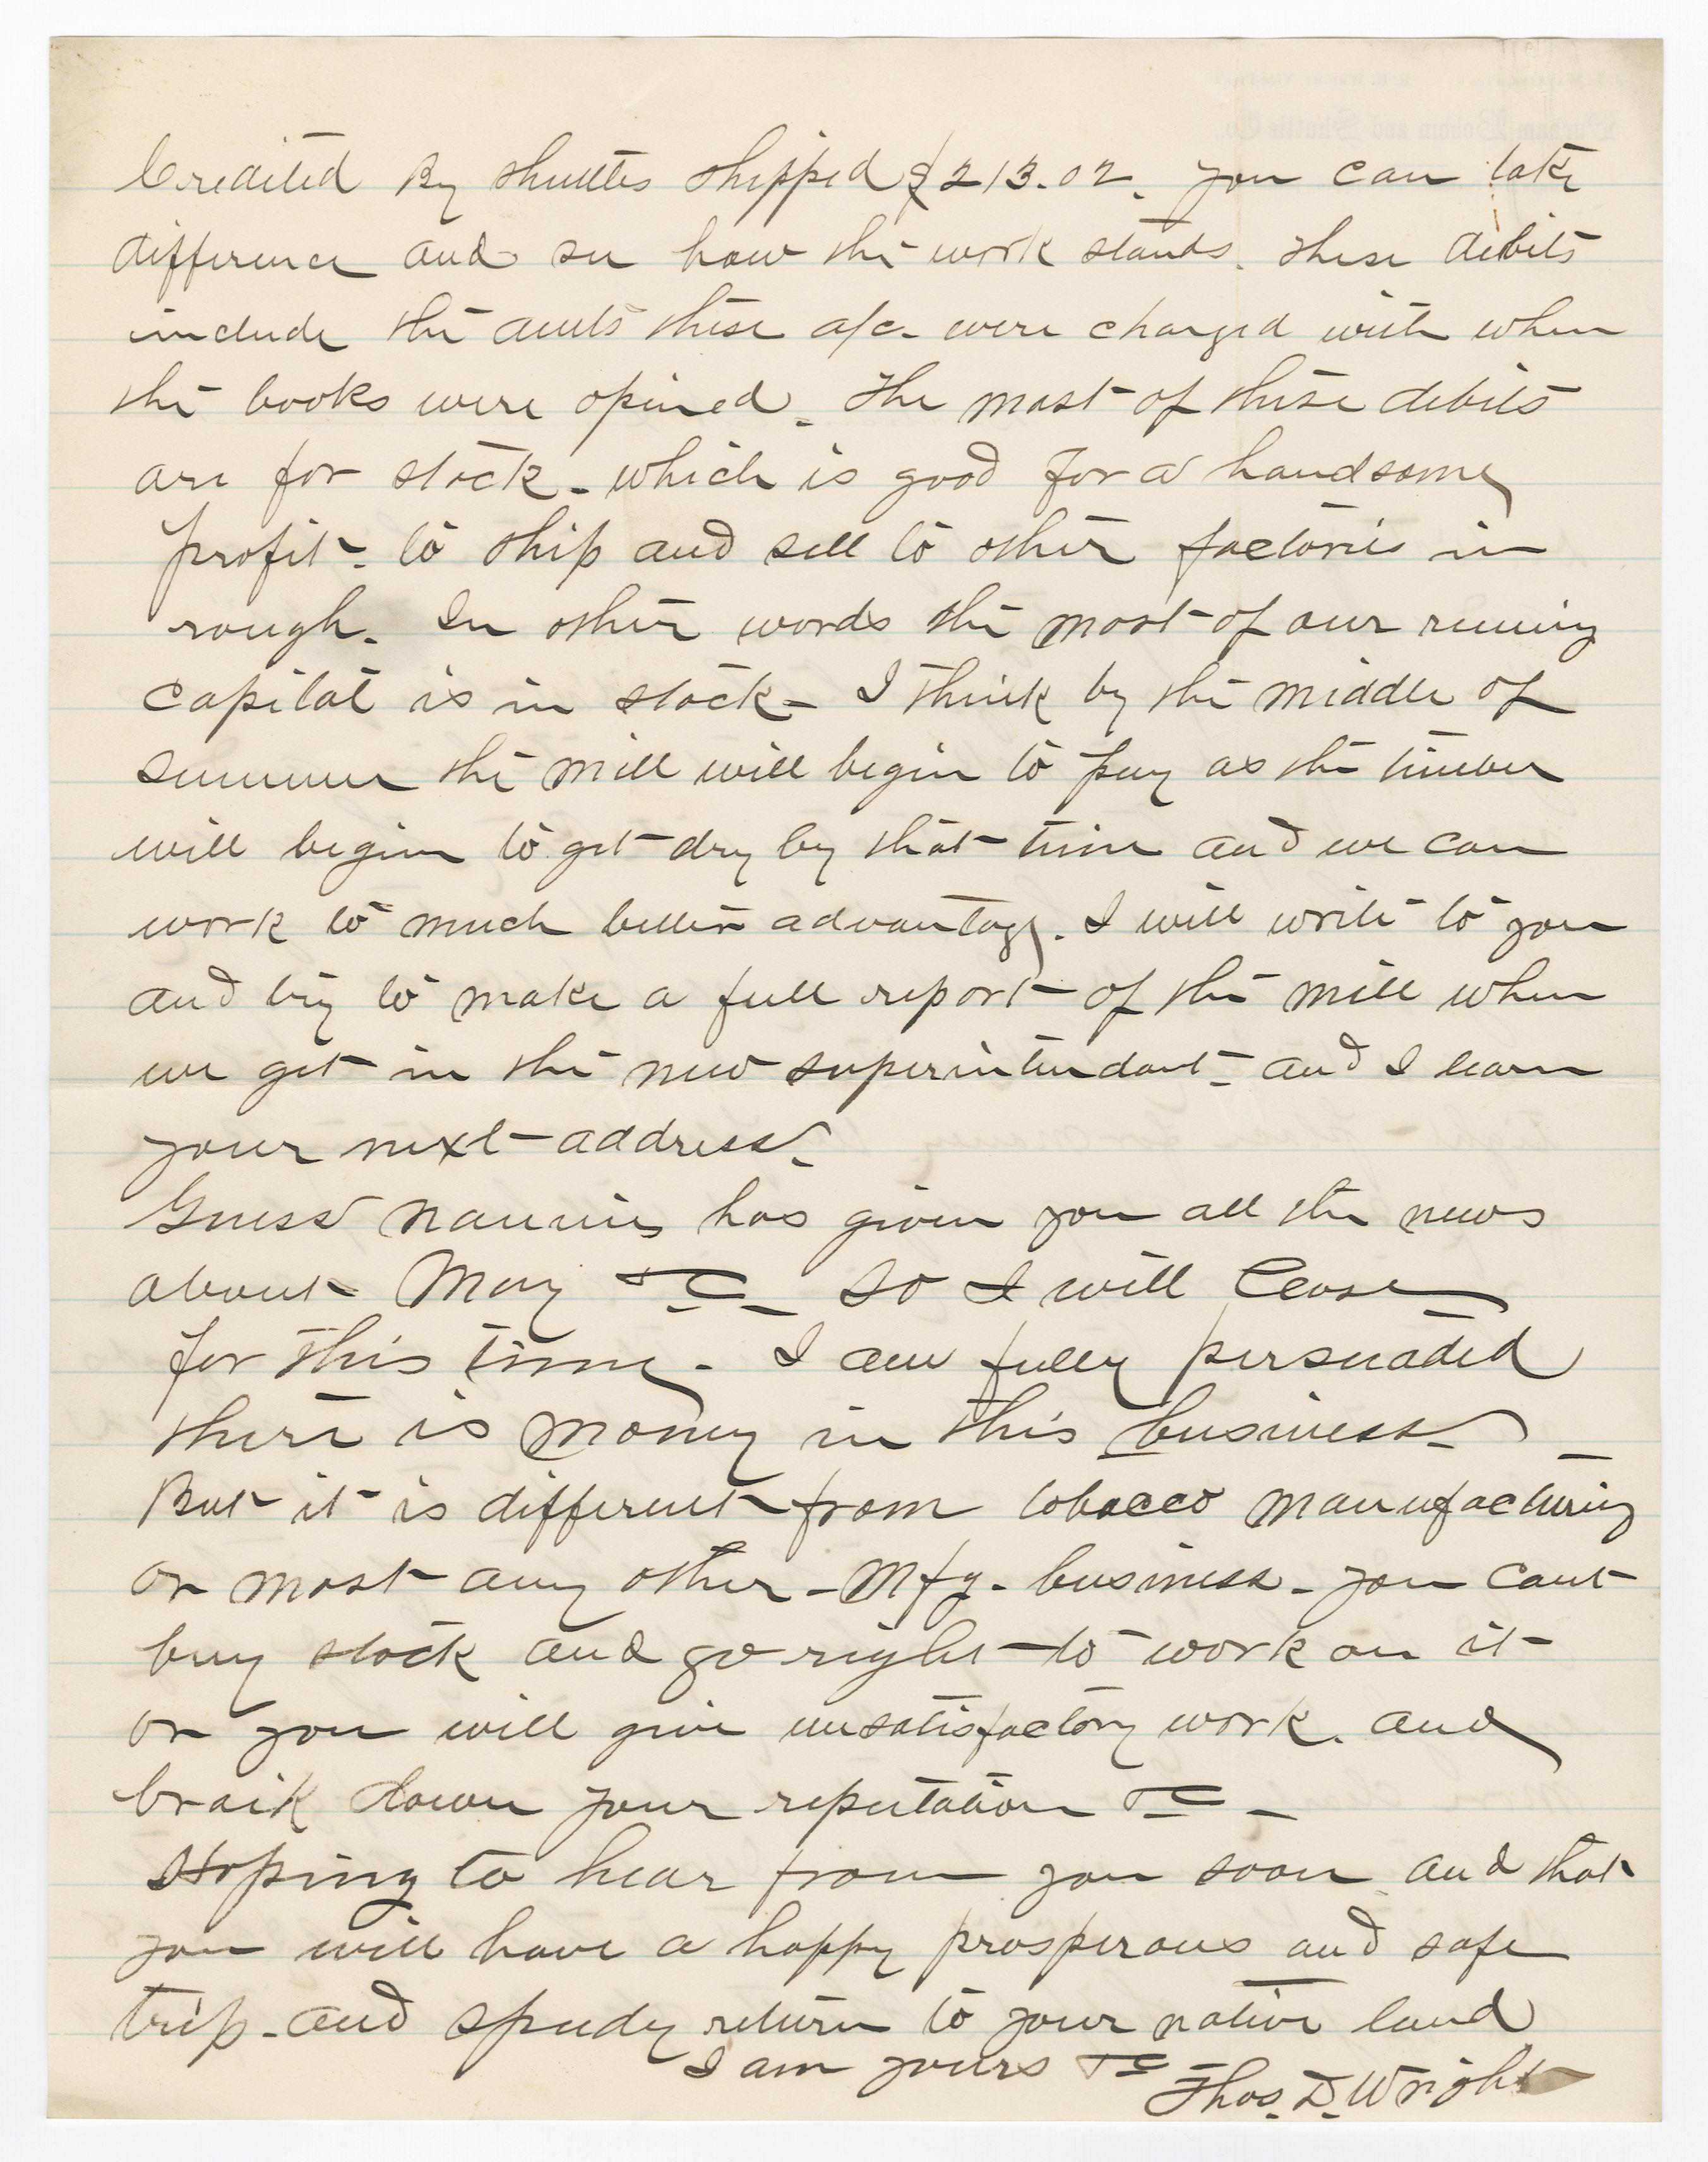 Credited By Shuttles Shipped $213.02. You can take
difference and see how the work stands. These debits
include the amts these a/c were charged with when
the books were opened. The most of these debits
are for stock - which is good for a handsome
profit - to ship and sell to other factories in
rough. In other words the most of our runing
capital is in stock - I think by the middle of
summer the mill will begin to pay as the timber
will begin to get dry by that time and we can
work to much better advantage. I will write to you
and try to make a full report of the mill when
we get in the new superintendant - and I learn
your next address.
Guess Nannie has given you all the news
about May &c - So I will Cease
for this time. I am fully persuaded
there is money in this business -
But it is different from tobacco manufacturing
or most any other - Mfg. business - you cant
buy stock and go right to work on it
or you will give unsatisfactory work. and
braik down your reputation &c -
Hoping to hear from you soon and that
you will have a happy prosperous and safe
trip - and speedy return to your native land
I am yours &c
Thos. D. Wright